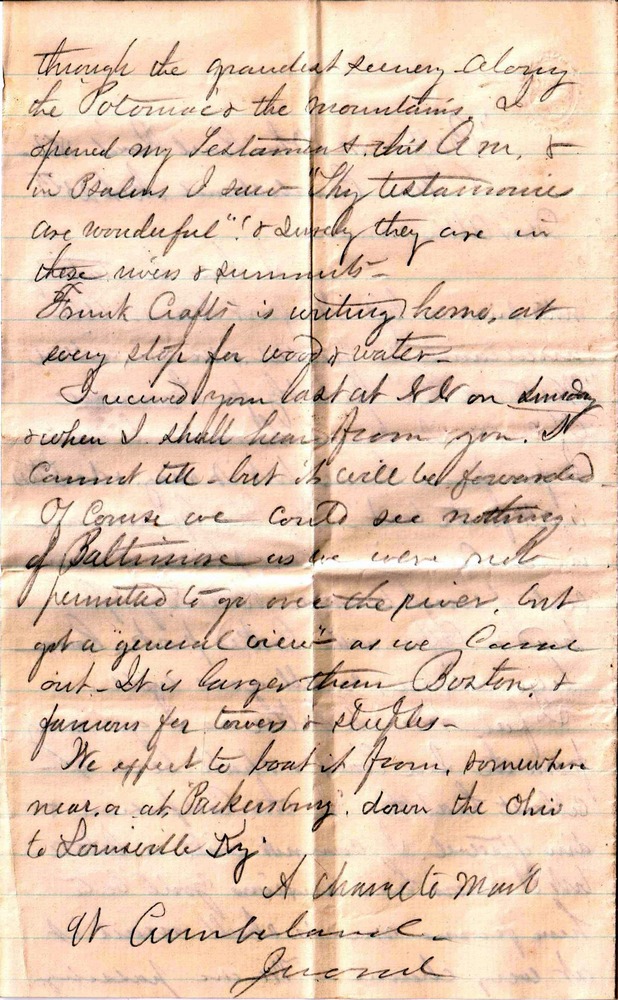 through the grandest scenery along
the Potomac & the mountains, I
opened my Testament this A m, &
in Psalms I saw "Thy testamonies
are wonderful"! & surely they are in
these rivers & summits -
Frank Crafts is writing home, at
every stop for wood & water -
I received your last at N N on Sunday
& when I shall hear from you. I
cannot tell - but it will be forwarded.
Of course we could see nothing
of Baltimore as we were not
permitted to go over the river, but
got a "general view" as we came
out - It is larger than Boston, &
famous for towers & steeples -
We expect to boat it from, somewhere
near, or at, Parkersburg, down the Ohio
to Louiseville Ky.
A chance to mail
at Cumberland -